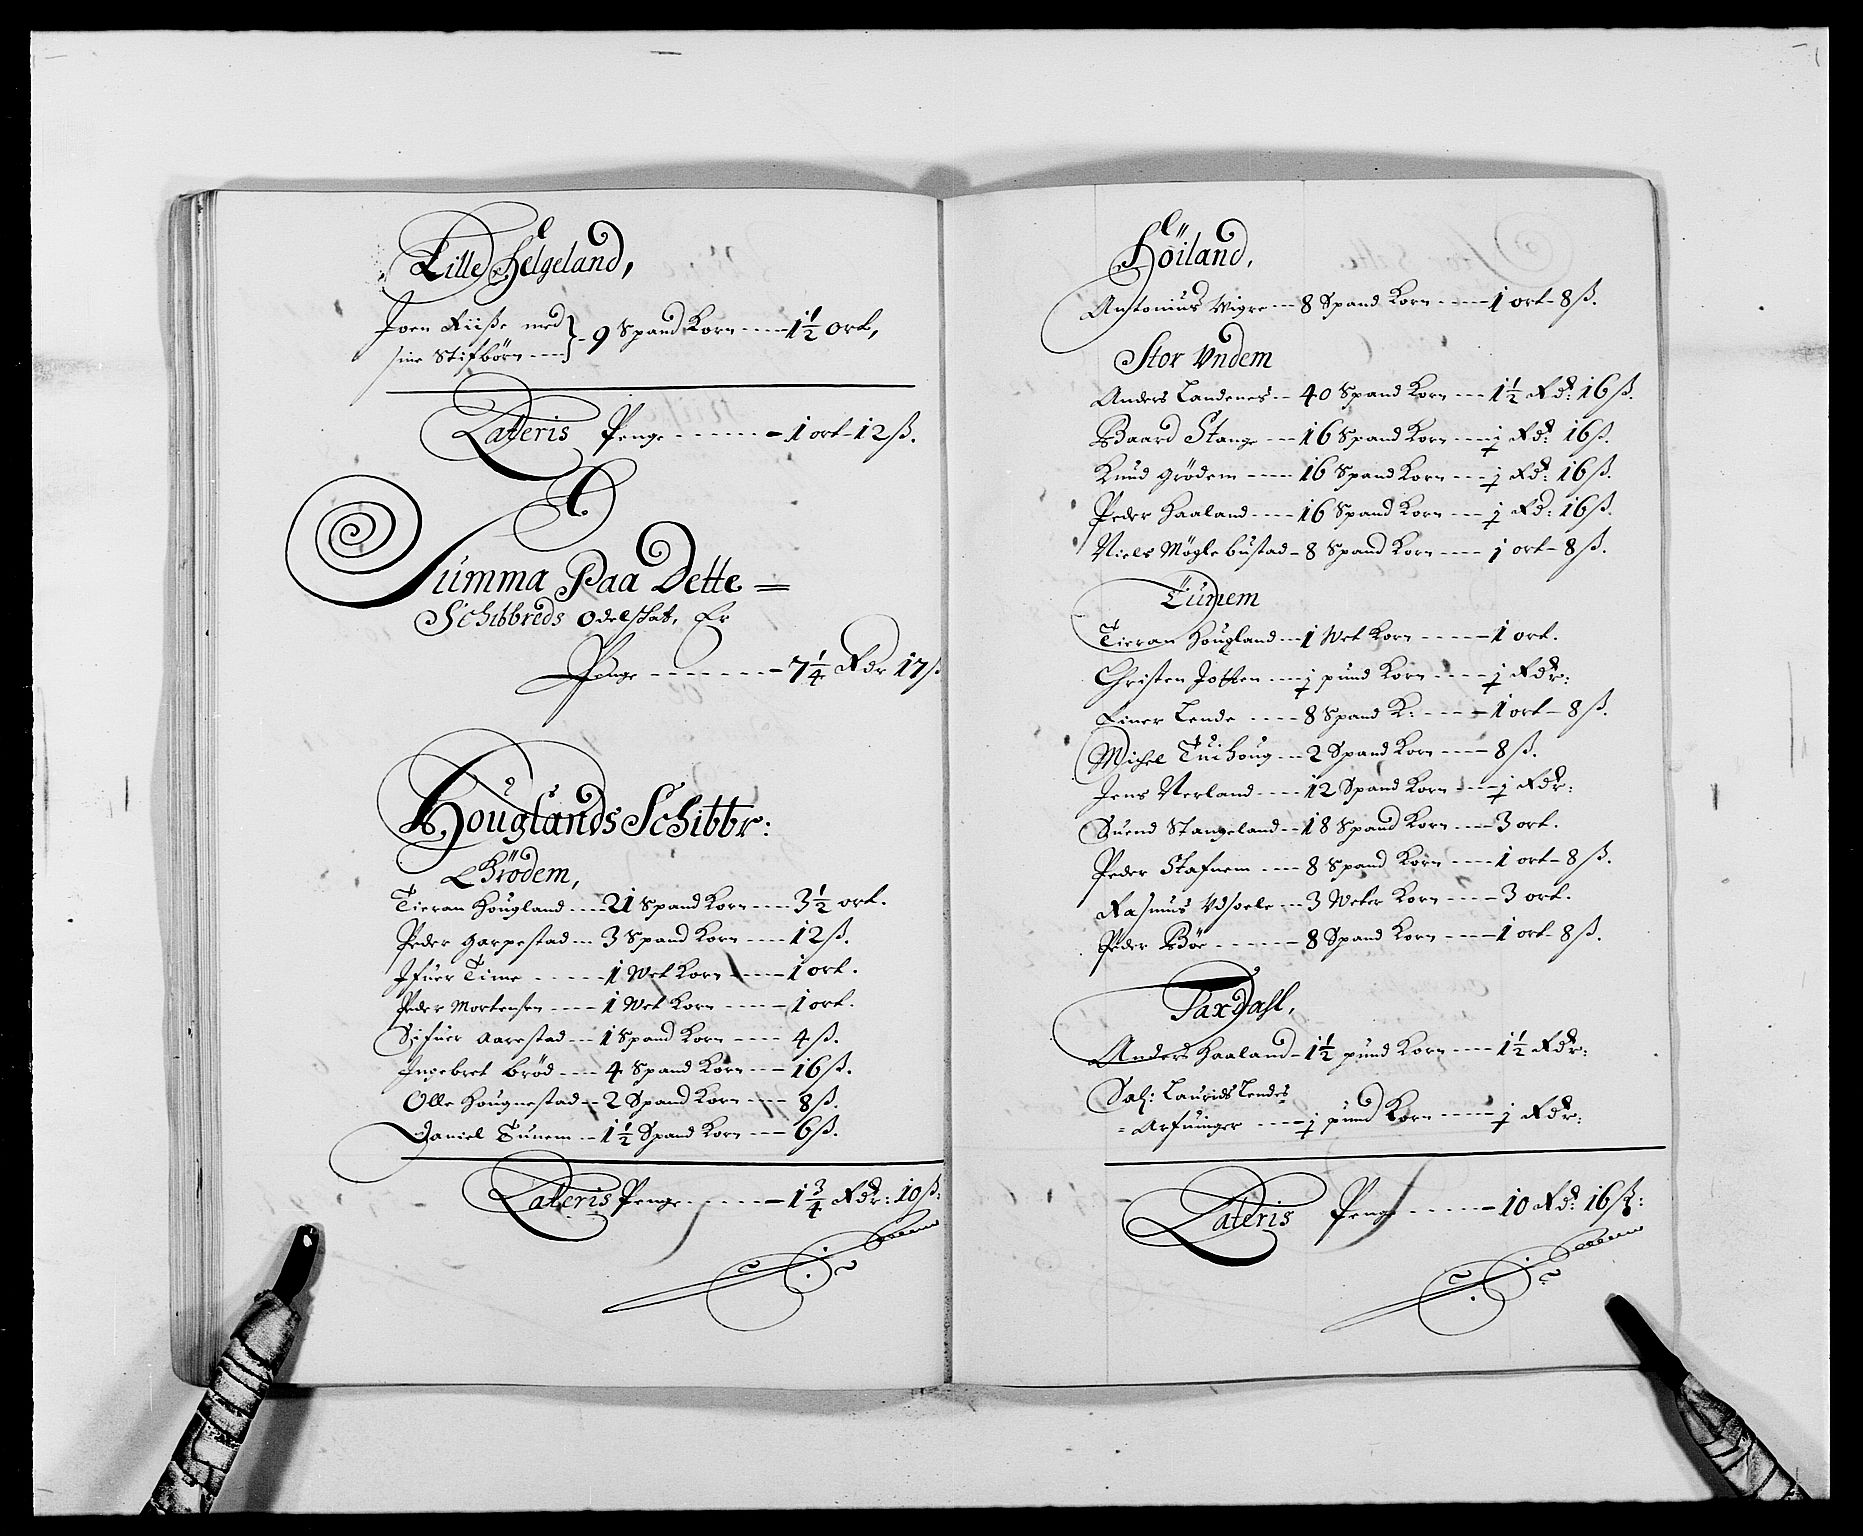 Lille Helgeland,
Joen Riiße med
sine Stifbörn ---- } - 9 Spand Korn ---- 1½ ort,
Lateris Penge -------- 1 ort - 12 ß.
Summa Paa Dette =
Schibbreds Odelskat, Er
Penge -------- 7¼ Rdr 17 ß
Houglands Schibbr:
Grödem,
Tieran Hougland --- 21 Spand Korn ---- 3½ ort.
Peder Garpestad --- 3 Spand Korn ---- 12 ß.
Ifuer Time ------ 1 Wet Korn ------ 1 ort.
Peder Mortensen ---- 1 Wet Korn ----- 1 ort.
Sifuer Aarestad --- 1 Spand Korn ---- 4 ß.
Ingebret Bröd ---- 4 Spand Korn --- 16 ß.
Olle Hougnestad -- 2 Spand Korn --- 8 ß.
Daniel Tunem -- 1½ Spand Korn --- 6 ß.
Lateris Penge ------- 1¾ Rdr: 10 ß:
Höiland,
Antonius Vigre --- 8 Spand Korn ----- 1 ort - 8 ß.
Stor Vndem
Anders Landenes -- 40 Spand Korn --- 1½ Rd: 16 ß.
Baard Stange --- 16 Spand Korn --- j Rd: 16 ß.
Knud Grödem ---- 16 Spand Korn --- j Rd: 16 ß.
Peder Haaland ---- 16 Spand Korn --- j Rd: 16 ß.
Niels Möglebustad - 8 Spand Korn ---- j ort - 8 ß.
Tunem
Tieran Hougland -- 1 Wet Korn ------ 1 ort.
Christen Jotten --- j pund Korn ---- j Rdr:
Einer Lende ---- 8 Spand K: ------ 1 ort - 8 ß.
Michel Tuihoug -- 2 Spand Korn ---- 8 ß.
Jens Nerland ---- 12 Spand Korn --- j Rdr:
Suend Stangeland -- 18 Spand Korn ---- 3 ort.
Peder Stafnem --- 8 Spand Korn ---- 1 ort - 8 ß.
Rasmus Vdsoele --- 3 Weter Korn ----- 3 ort.
Peder Böe ------- 8 Spand Korn ----- 1 ort - 8 ß.
Taxdahl,
Anders Haaland - 1½ pund Korn ---- 1½ Rdr:
Sal: Laurids Lendes
= Arfuinger ---- j pund Korn ----- j Rdr:
Lateris Penge ------- 10 Rd: 16 ß: